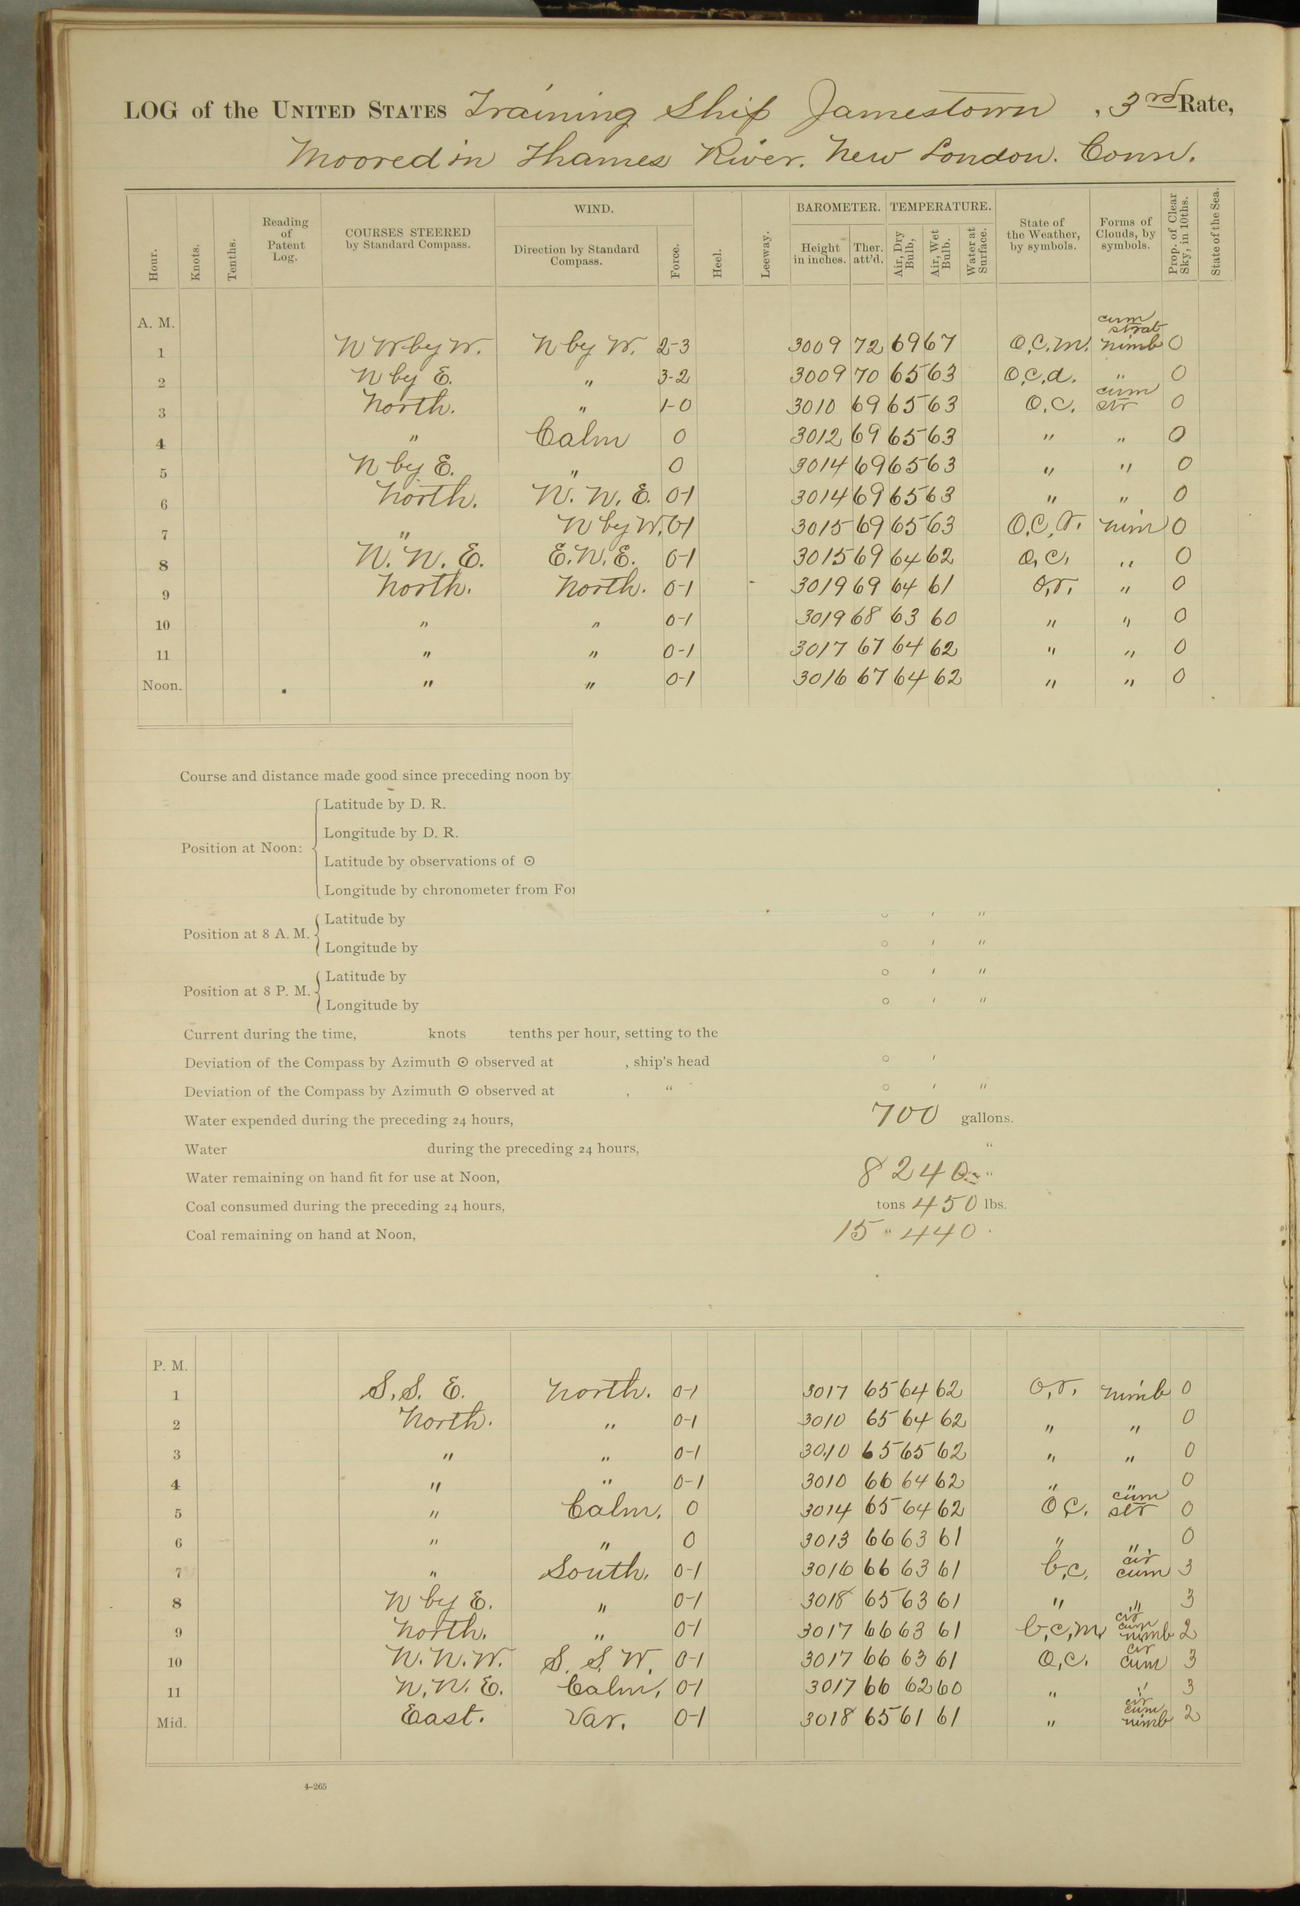 LOG of the UNITED STATES Training Ship Jamestown , 3rd Rate,
Moored in Thames River. New London. Conn.
Hour. Knots. Tenths. Reading of Patent Log. COURSES STEERED by Standard Compass. WIND. Direction by Standard Compass. Force. Heel. Leeway. BAROMETER. Height in inches. Ther. att'd. TEMPERATURE. Air, Dry Bulb, Air, Wet Bulb. Water at Surface. State of the Weather, by symbols. Forms of Clouds, by symbols. Prop. of Clear Sky, in 10ths. State of the Sea.
A. M.
1 N W by W. N by W. 2-3 3009 72 69 67 O.C.m. cum strat nimb 0
2 N by E. " 3-2 3009 70 65 63 O.C.d. " 0
3 North. " 1-0 3010 69 65 63 O.C. cum str 0
4 " Calm 0 3012 69 65 63 " " 0
5 N by E. " 0 3014 69 65 63 " " 0
6 North. N. N. E. 0-1 3014 69 65 63 " " 0
7 " N by W. 0-1 3015 69 65 63 O.C.r. nim 0
8 N. N. E. E.N.E. 0-1 3015 69 64 62 O.C. " 0
9 North. North. 0-1 3019 69 64 61 O.r. " 0
10 " " 0-1 3019 68 63 60 " " 0
11 " " 0-1 3017 67 64 62 " " 0
Noon. " " 0-1 3016 67 64 62 " " 0
Course and distance made good since preceding noon by
Position at Noon: Latitude by D. R.
Longitude by D. R.
Latitude by observations of ⊙
Longitude by chronometer from
Position at 8 A. M. Latitude by ° ' "
Longitude by ° ' "
Position at 8 P. M. Latitude by ° ' "
Longitude by ° ' "
Current during the time, knots tenths per hour, setting to the
Deviation of the Compass by Azimuth ⊙ observed at , ship's head ° '
Deviation of the Compass by Azimuth ⊙ observed at , " ° ' "
Water expended during the preceding 24 hours, 700 gallons.
Water during the preceding 24 hours, "
Water remaining on hand fit for use at Noon, 8240 "
Coal consumed during the preceding 24 hours, tons 450 lbs.
Coal remaining on hand at Noon, 15 " 440
P. M.
1 S.S. E. North. 0-1 3017 65 64 62 O.r. nimb 0
2 North. " 0-1 3010 65 64 62 " " 0
3 " " 0-1 3010 65 65 62 " " 0
4 " " 0-1 3010 66 64 62 " " 0
5 " Calm. 0 3014 65 64 62 O C. cum str 0
6 " " 0 3013 66 63 61 " " 0
7 " South. 0-1 3016 66 63 61 b.c. cir cum 3
8 N by E. " 0-1 3018 65 63 61 " " 3
9 North. " 0-1 3017 66 63 61 b,c,m, cir cum nimb 2
10 N. N. W. S. S. W. 0-1 3017 66 63 61 O,C. cir cum 3
11 N. N. E. Calm. 0-1 3017 66 62 60 " " 3
Mid. East. Var. 0-1 3018 65 61 61 " cir cum nimb 2
4-265